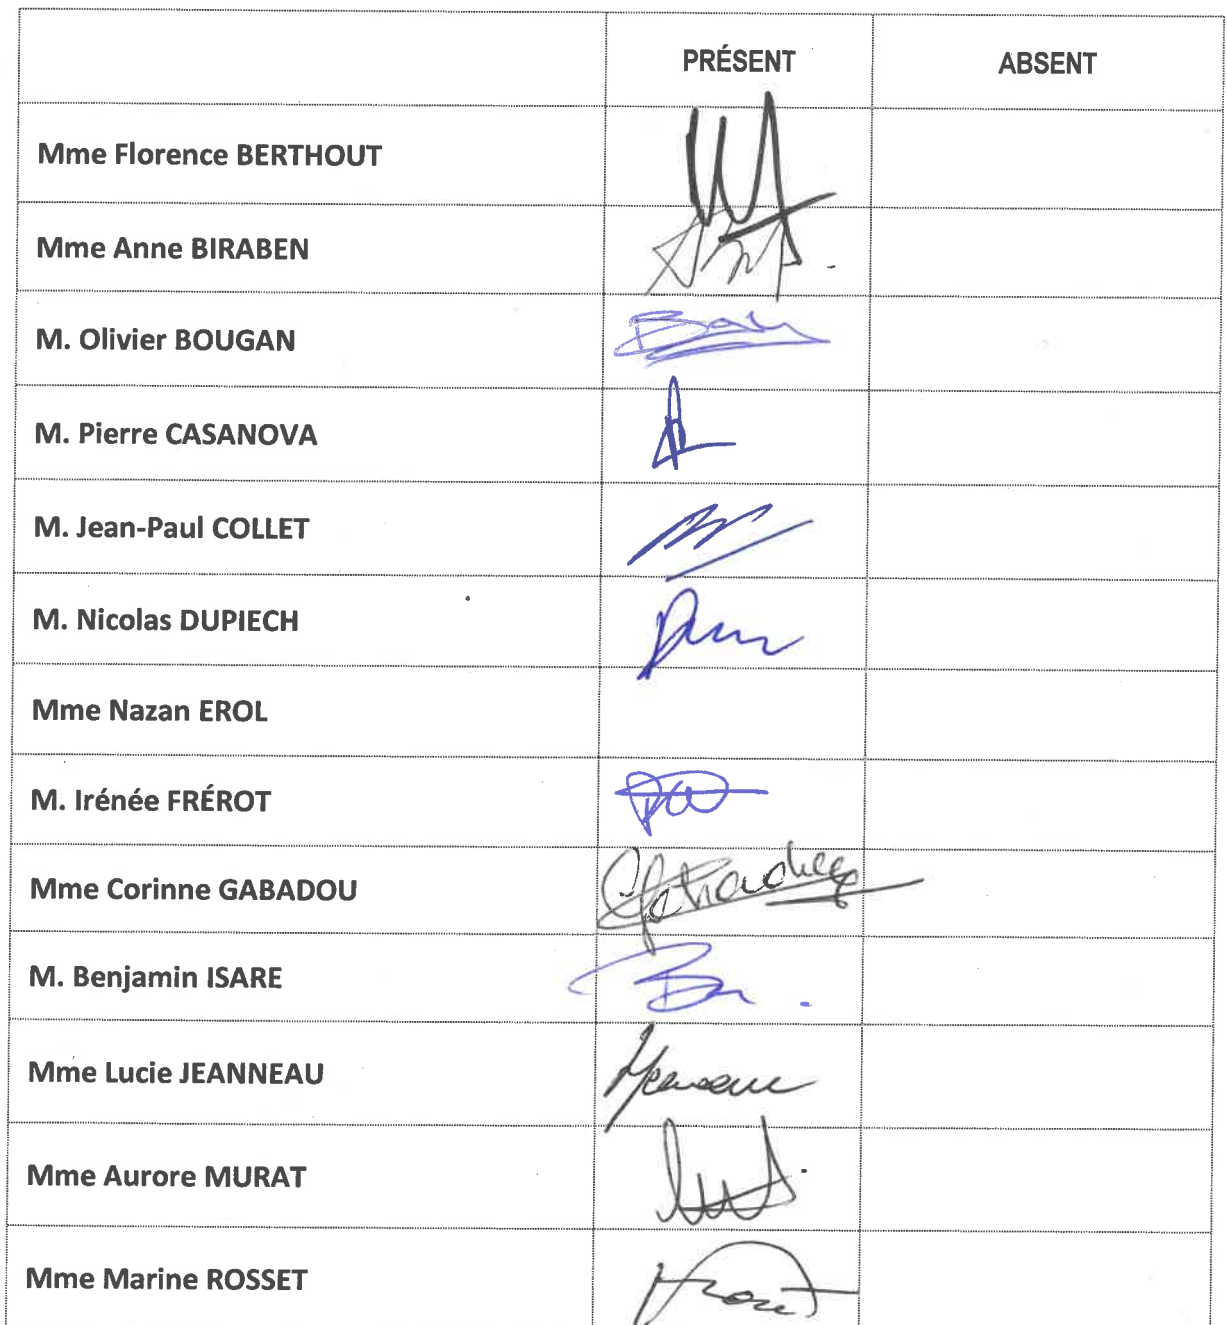 PRÉSENT ABSENT
Mme Florence BERTHOUT
Mme Anne BIRABEN
M. Olivier BOUGAN
M. Pierre CASANOVA
M. Jean-Paul COLLET
M. Nicolas DUPIECH
Mme Nazan EROL
M. Irénée FRÉROT
Mme Corinne GABADOU
M. Benjamin ISARE
Mme Lucie JEANNEAU
Mme Aurore MURAT
Mme Marine ROSSET